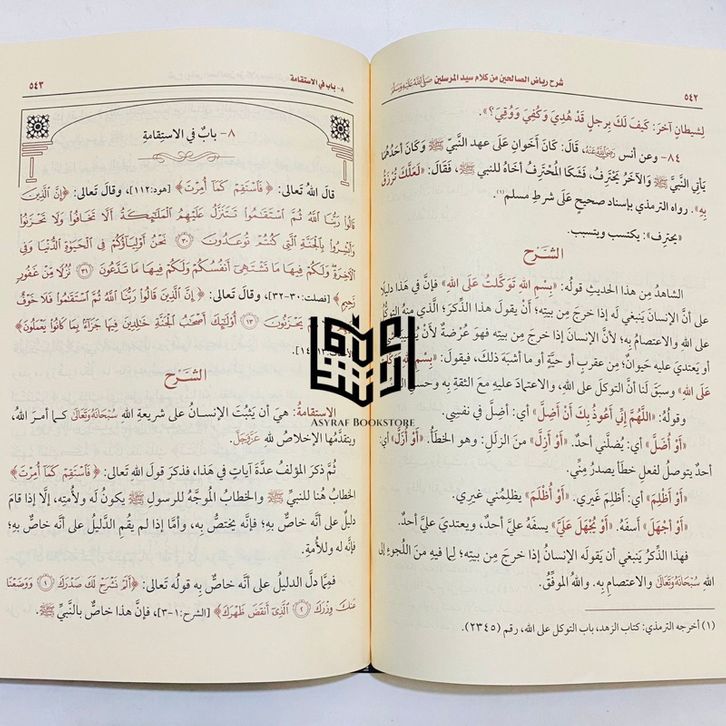 ٥٤٢
شرح رياض الصالحين من كلام سيد المرسلين صَلَّى اللَّهُ عَلَيْهِ وَسَلَّمَ
لِشيطانٍ آخرَ: كَيفَ لَكَ بِرجلٍ قَد هُدِيَ وَكُفِيَ وَوُقِيَ؟».
٨٤- وعن أنس رَضِيَ اللَّهُ عَنْهُ، قَالَ: كَانَ أَخَوانِ عَلى عهد النبيِّ ﷺ وَكَانَ أَحدُهُمَا
يَأتِي النَّبِيَّ ﷺ وَالآخَرُ يَحْتَرِفُ، فَشَكَا المُحْتَرِفُ أخَاهُ للنبي ﷺ، فَقَالَ: «لَعَلَّكَ تُرْزَقُ
بِهِ». رواه الترمذي بإسناد صحيحٍ عَلَى شرطِ مسلم(١).
«يحترِف»: يكتسب ويتسبب.
الشَّرْح
الشاهدُ مِن هذا الحديثِ قولُه: «بِسْمِ اللَّهِ تَوَكَّلتُ عَلَى اللهِ» فإنَّ في هذا دليلًا
على أنَّ الإنسانَ ينبغي له إذا خرجَ مِن بيتِه؛ أنْ يقولَ هذا الذِّكرَ؛ الَّذي منهُ التوكلُ
على اللهِ والاعتصامُ بهِ؛ لأنَّ الإنسانَ إذا خرجَ مِن بيتِه فهو عُرْضةٌ لأنْ يُصيبَهُ شيءٌ
أو يَعتديَ عليه حَيوانٌ؛ مِن عقربٍ أو حيَّةٍ أو ما أشبَهَ ذلك، فيقولُ: «بِسْمِ اللَّهِ تَوَكَّلْتُ
عَلَى اللهِ» وسبقَ لَنا أنَّ التوكلَ على اللهِ، والاعتمادَ عليهِ معَ الثقةِ بهِ وحسنِ الظنِّ
وقولُه: «اللَّهُمَّ إِنِّي أَعُوذُ بِكَ أَنْ أَضِلَّ» أي: أضِلَّ في نفسِي.
«أَوْ أُضَلَّ» أي: يُضلَّني أحدٌ. «أَوْ أَزِلَّ» منَ الزللِ: وهو الخطأُ. «أَوْ أُزَلَّ» أي:
أحدٌ يتوصلُ لفعلِ خطأٍ يصدرُ مِنِّي.
«أَوْ أَظْلِمَ» أي: أظلِمَ غيري. «أَوْ أُظْلَمَ» يظلِمُني غيري.
«أَوْ أَجْهَلَ» أسفَهَ. «أَوْ يُجْهَلَ عَلَيَّ» يسفهُ عليَّ أحدٌ، ويعتديَ عليَّ أحدٌ.
فهذا الذِّكرُ ينبغي أنْ يقولَه الإنسانُ إذا خرجَ مِن بيتِه؛ لِما فيهِ مِنَ اللُّجوءِ إلى
اللهِ سُبْحَانَهُ وَتَعَالَى والاعتصامِ بهِ. واللهُ الموفِّقُ.
(١) أخرجه الترمذي: كتاب الزهد، باب التوكل على الله، رقم (٢٣٤٥).
٨- باب في الاستقامة
٥٤٣
٨- بابٌ في الاستقامةِ
قالَ اللهُ تَعالى: ﴿فَاسْتَقِمْ كَمَا أُمِرْتَ﴾ [هود:١١٢]، وقال تَعالى: ﴿إِنَّ الَّذِينَ
قَالُوا رَبُّنَا اللَّهُ ثُمَّ اسْتَقَامُوا تَتَنَزَّلُ عَلَيْهِمُ الْمَلَائِكَةُ أَلَّا تَخَافُوا وَلَا تَحْزَنُوا
وَأَبْشِرُوا بِالْجَنَّةِ الَّتِي كُنتُمْ تُوعَدُونَ ۝٣٠ نَحْنُ أَوْلِيَاؤُكُمْ فِي الْحَيَاةِ الدُّنْيَا وَفِي
الْآخِرَةِ وَلَكُمْ فِيهَا مَا تَشْتَهِي أَنفُسُكُمْ وَلَكُمْ فِيهَا مَا تَدَّعُونَ ۝٣١ نُزُلًا مِّنْ غَفُورٍ
رَّحِيمٍ﴾ [فصلت:٣٠-٣٢]، وقال تَعالى: ﴿إِنَّ الَّذِينَ قَالُوا رَبُّنَا اللَّهُ ثُمَّ اسْتَقَامُوا فَلَا خَوْفٌ
يَحْزَنُونَ ۝١٣ أُولَٰئِكَ أَصْحَابُ الْجَنَّةِ خَالِدِينَ فِيهَا جَزَاءً بِمَا كَانُوا يَعْمَلُونَ﴾
١٤].
الشَّرْح
الاستقامةُ: هيَ أن يَثبُتَ الإنسانُ على شريعةِ اللهِ سُبْحَانَهُ وَتَعَالَى كما أمرَ اللهُ،
ويتقدَّمُها الإخلاصُ للهِ عَزَّوَجَلَّ.
ثُمَّ ذكرَ المؤلفُ عدَّةَ آياتٍ في هَذا، فذكرَ قولَ اللهِ تعالى: ﴿فَاسْتَقِمْ كَمَا أُمِرْتَ﴾
الخطابُ هُنا للنبيِّ ﷺ والخطابُ الموجَّهُ للرسولِ ﷺ يكونُ لَه ولأُمتِه، إلَّا إذا قامَ
دليلٌ على أنَّه خاصٌّ بِهِ؛ فإنَّه يختصُّ بِه، وأمَّا إذا لم يقُمِ الدَّليلُ على أنَّه خاصٌّ بِه؛
فإنَّه له وللأُمةِ.
فمِمَّا دلَّ الدليلُ على أنَّه خاصٌّ بِه قولُه تَعالى: ﴿أَلَمْ نَشْرَحْ لَكَ صَدْرَكَ ۝١ وَوَضَعْنَا
عَنكَ وِزْرَكَ ۝٢ الَّذِي أَنقَضَ ظَهْرَكَ﴾ [الشرح:١-٣]، فإنَّ هذا خاصٌّ بالنَّبيِّ ﷺ.
ASYRAF BOOKSTORE